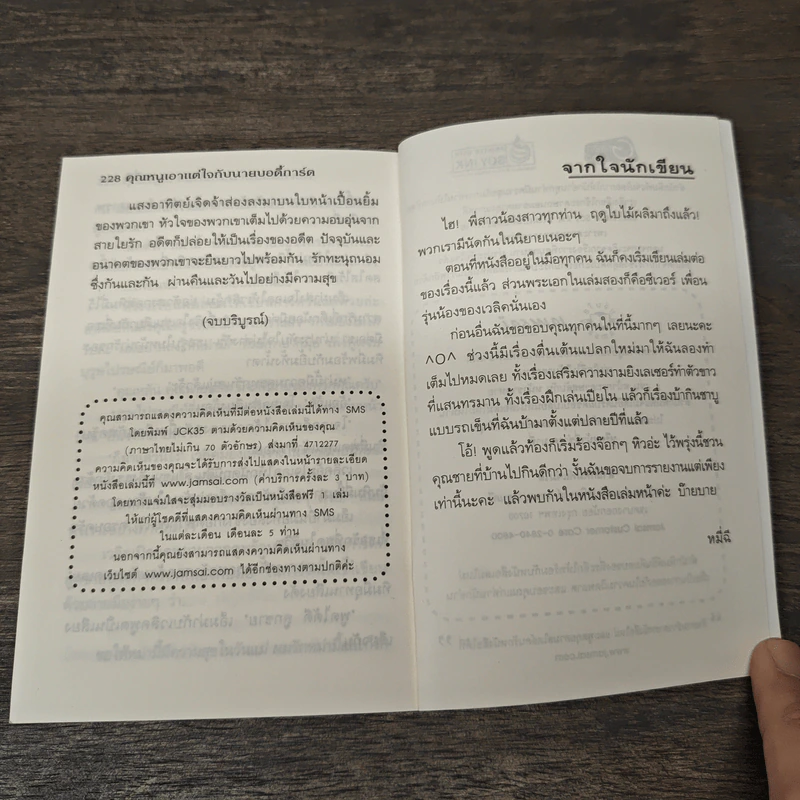 228 คุณหนูเอาแต่ใจกับนายบอดี้การ์ด
แสงอาทิตย์เจิดจ้าส่องลงมาบนใบหน้าเปื้อนยิ้ม
ของพวกเขา หัวใจของพวกเขาเต็มไปด้วยความอบอุ่นจาก
สายใยรัก อดีตก็ปล่อยให้เป็นเรื่องของอดีต ปัจจุบันและ
อนาคตของพวกเขาจะยืนยาวไปพร้อมกัน รักทะนุถนอม
ซึ่งกันและกัน ผ่านคืนและวันไปอย่างมีความสุข
(จบบริบูรณ์)
คุณสามารถแสดงความคิดเห็นที่มีต่อหนังสือเล่มนี้ได้ทาง SMS
โดยพิมพ์ JCK35 ตามด้วยความคิดเห็นของคุณ
(ภาษาไทยไม่เกิน 70 ตัวอักษร) ส่งมาที่ 4712277
ความคิดเห็นของคุณจะได้รับการส่งไปแสดงในหน้ารายละเอียด
หนังสือเล่มนี้ที่ www.jamsai.com (ค่าบริการครั้งละ 3 บาท)
โดยทางแจ่มใสจะสุ่มมอบรางวัลเป็นหนังสือฟรี 1 เล่ม
ให้แก่ผู้โชคดีที่แสดงความคิดเห็นผ่านทาง SMS
ในแต่ละเดือน เดือนละ 5 ท่าน
นอกจากนี้คุณยังสามารถแสดงความคิดเห็นผ่านทาง
เว็บไซต์ www.jamsai.com ได้อีกช่องทางตามปกติค่ะ
จากใจนักเขียน
ไฮ! พี่สาวน้องสาวทุกท่าน ฤดูใบไม้ผลิมาถึงแล้ว!
พวกเรามีนัดกันในนิยายเนอะๆ
ตอนที่หนังสืออยู่ในมือทุกคน ฉันก็คงเริ่มเขียนเล่มต่อ
ของเรื่องนี้แล้ว ส่วนพระเอกในเล่มสองก็คือซีเวอร์ เพื่อน
รุ่นน้องของเวลิคนั่นเอง
ก่อนอื่นฉันขอขอบคุณทุกคนในที่นี้มากๆ เลยนะคะ
^O^ ช่วงนี้มีเรื่องตื่นเต้นแปลกใหม่มาให้ฉันลองทำ
เต็มไปหมดเลย ทั้งเรื่องเสริมความงามยิงเลเซอร์ทำตัวขาว
ที่แสนทรมาน ทั้งเรื่องฝึกเล่นเปียโน แล้วก็เรื่องบ้ากินชาบู
แบบรถเข็นที่ฉันบ้ามาตั้งแต่ปลายปีที่แล้ว
โอ้! พูดแล้วท้องก็เริ่มร้องจ๊อกๆ หิวอ่ะ ไว้พรุ่งนี้ชวน
คุณชายที่บ้านไปกินดีกว่า งั้นฉันขอจบการรายงานแต่เพียง
เท่านี้นะคะ แล้วพบกันในหนังสือเล่มหน้าค่ะ บ๊ายบาย
หมี่ฉี